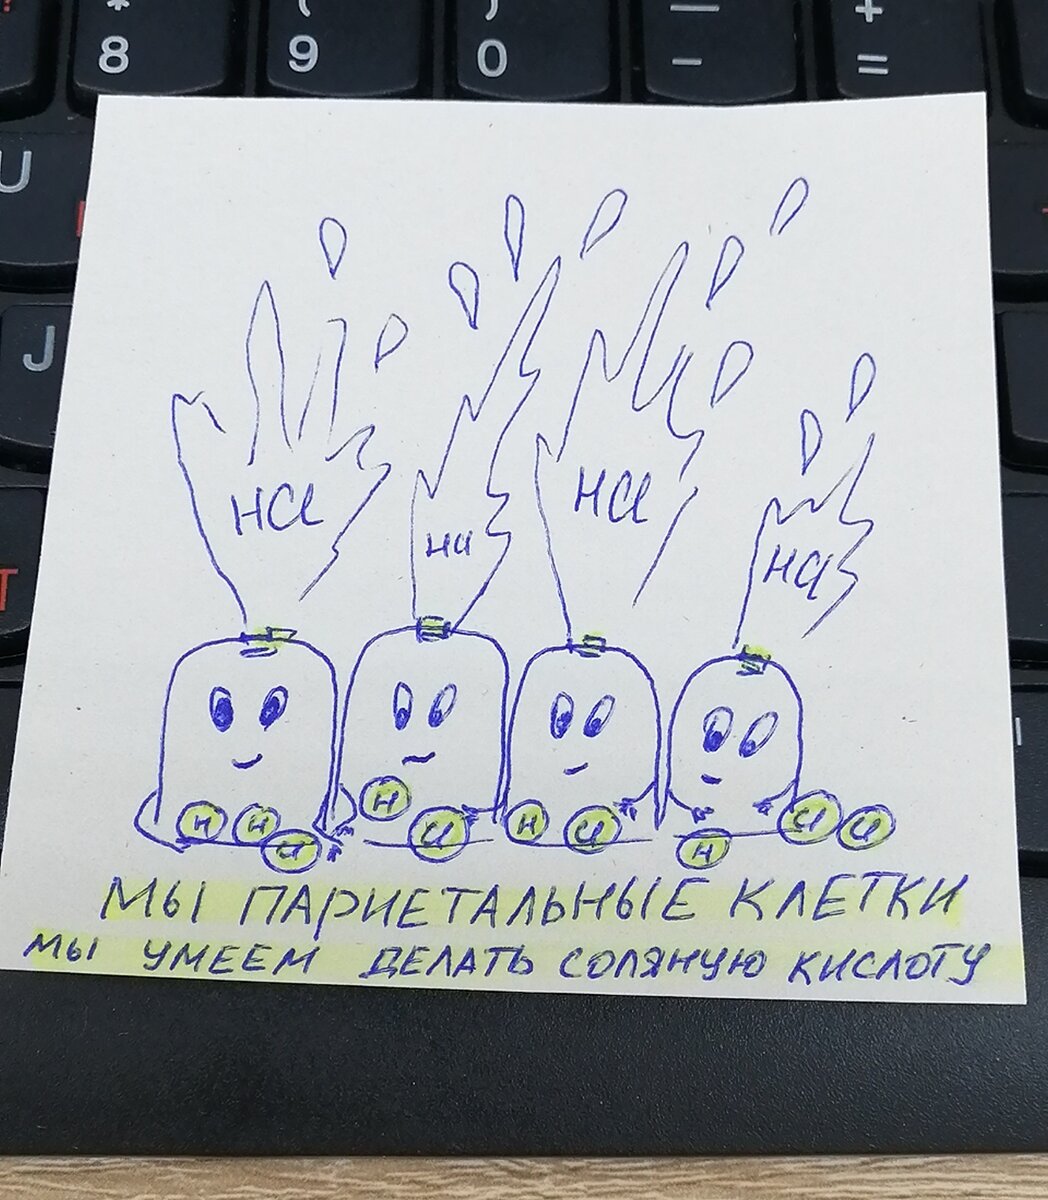 * ( ) — +
8 9 0 - =
U
J
HCl HCl HCl HCl
H H Cl H Cl H Cl H Cl Cl
МЫ ПАРИЕТАЛЬНЫЕ КЛЕТКИ
МЫ УМЕЕМ ДЕЛАТЬ СОЛЯНУЮ КИСЛОТУ